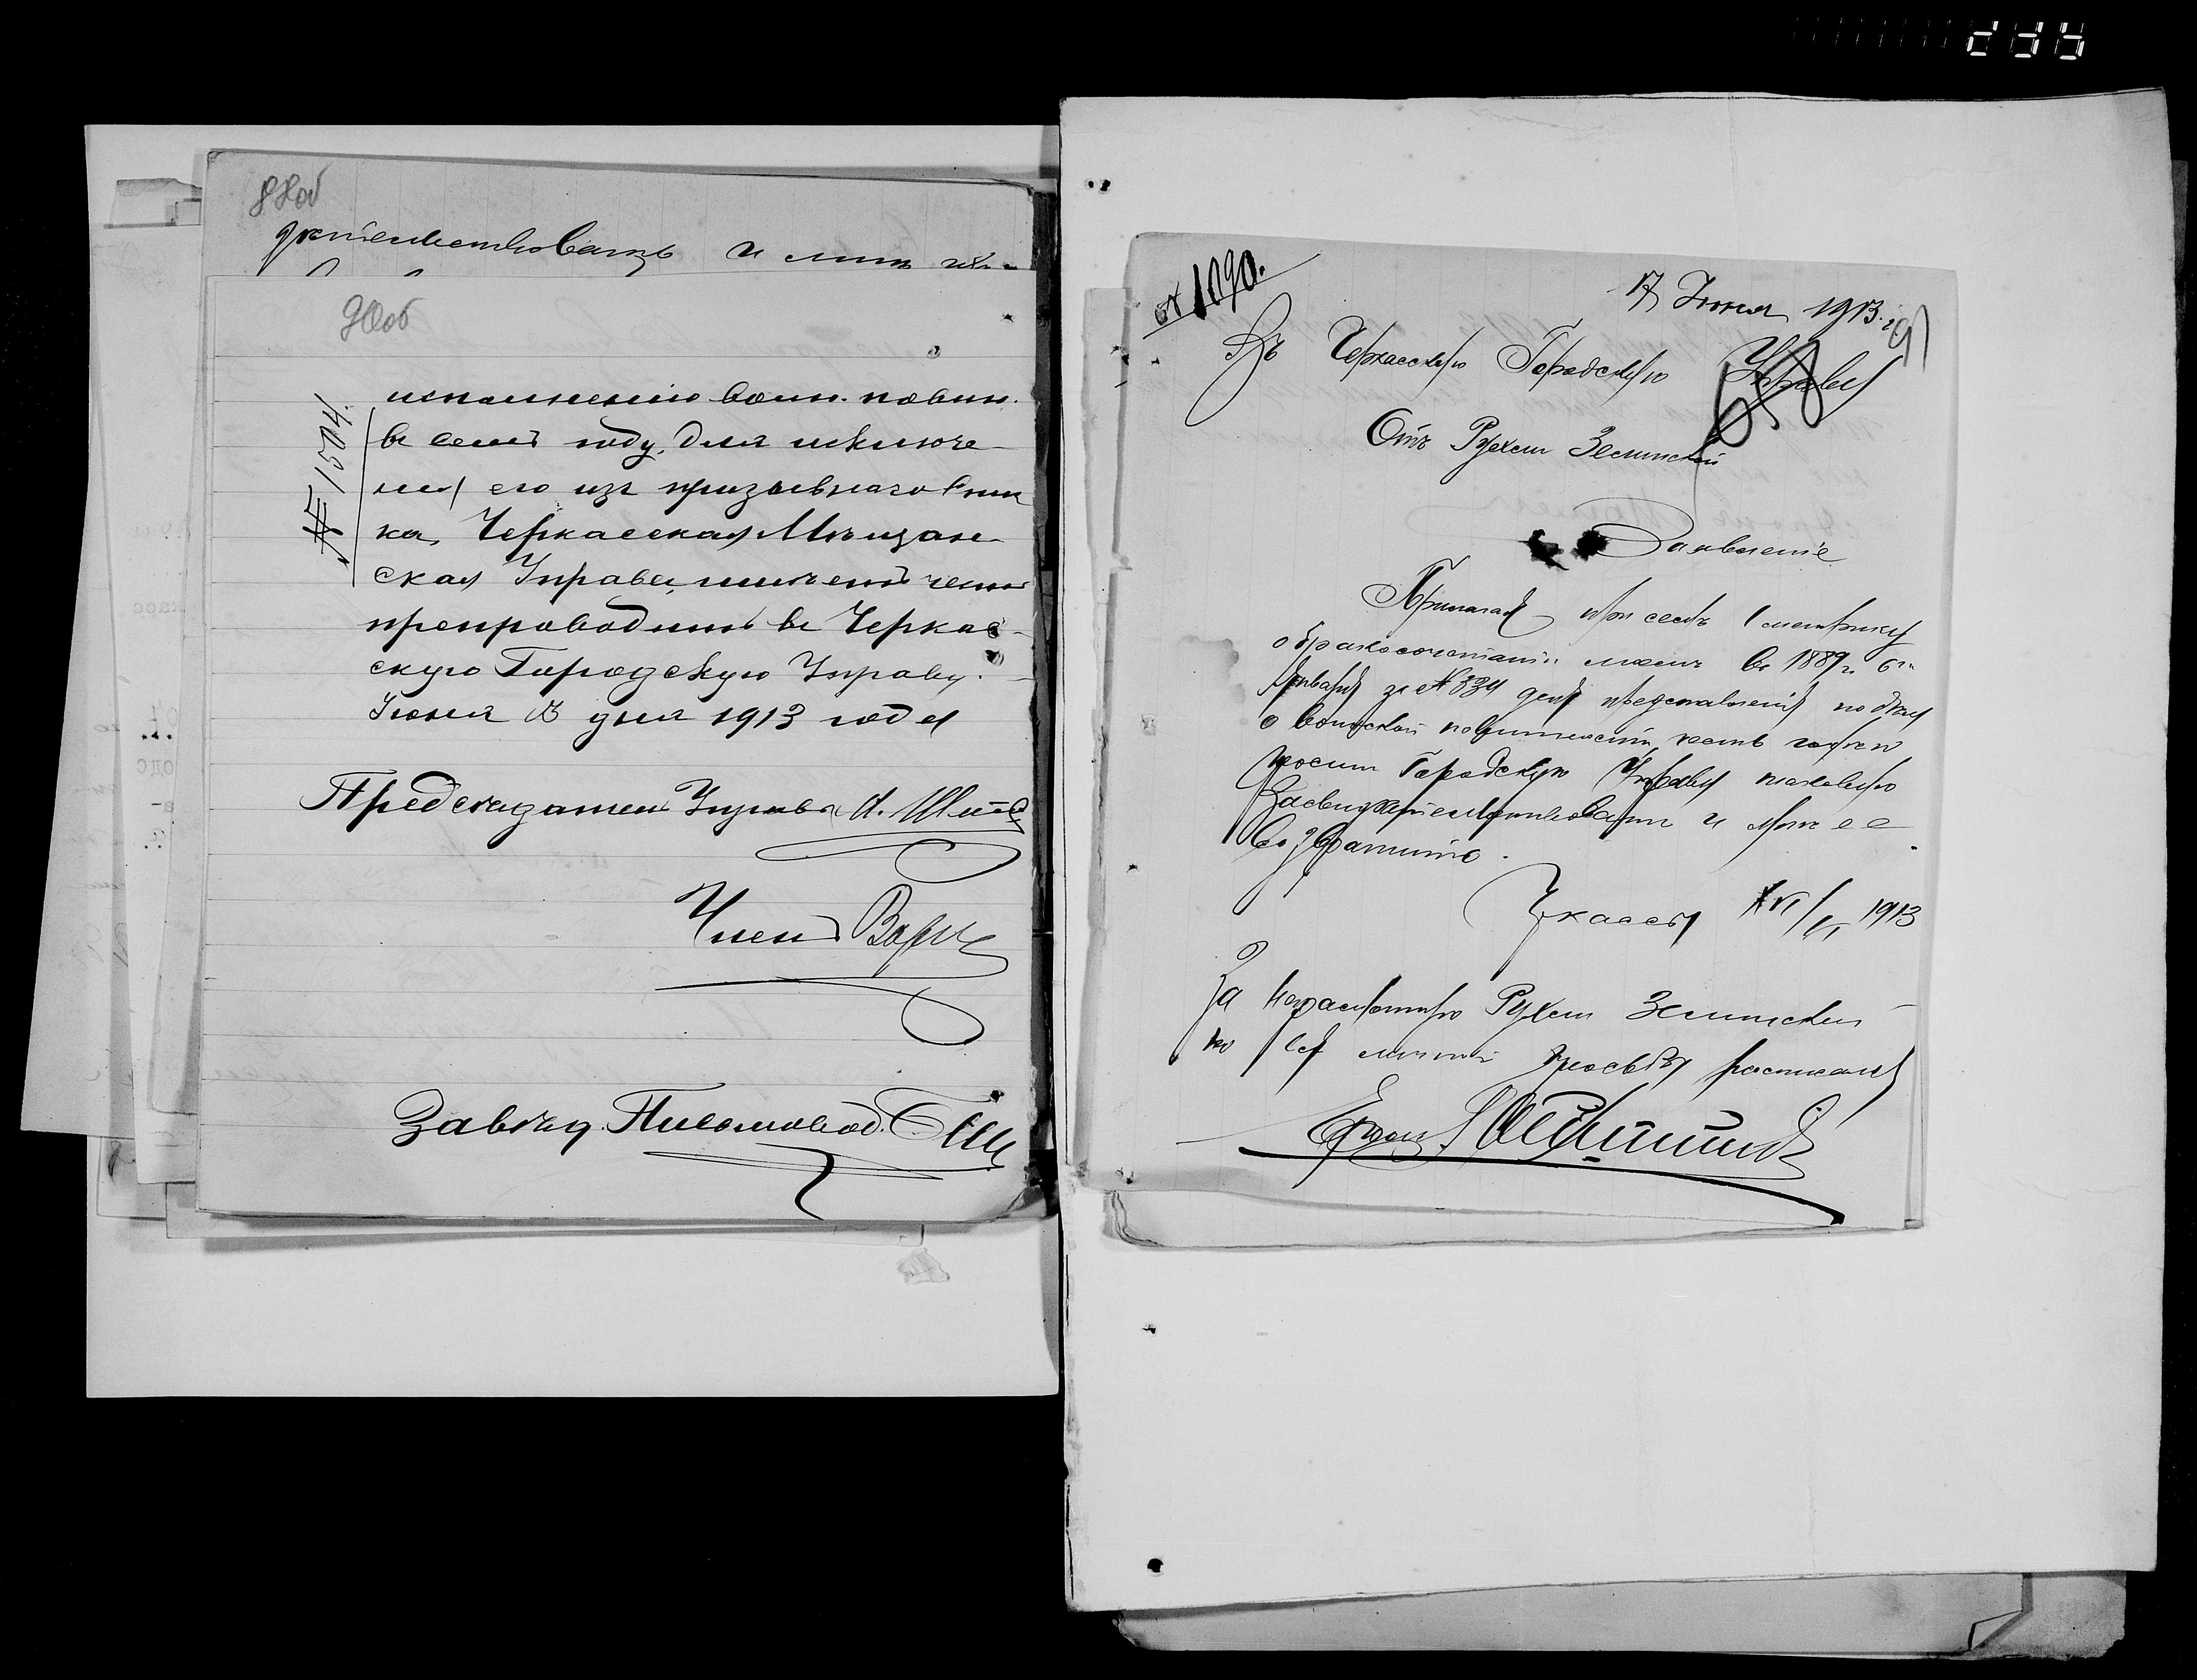 88об
дѣтельствовать и мнѣ
90об
№ 1504.
исполненію воин. повин.
въ семъ году, для исключе-
нія его изъ призывнаго спис
ка, Черкасская Мѣщан-
ская Управа,
препроводить въ Черкас-
скую Городскую Управу.
Іюня 13 дня 1913 года
Предсѣдатель Управы
Членъ
Завѣдыв. Письмовод.
№ 1090.
17 Іюня 1913 г.
91
Въ Черкасскую Городскую Управу
Отъ Рухли Зеленской
Заявленіе
Прилагая при семъ метрику
о бракосочетаніи моемъ въ 1889 г. 6го
Января за № 334 для представленія по дѣлу
о воинской повинности, честь имѣю
просить Городскую Управу таковую
засвидѣтельствовать и мнѣ ее
возвратить.
Черкассы 1913
За неграмотную Рухлю Зеленскую
по ея личной просьбѣ росписался